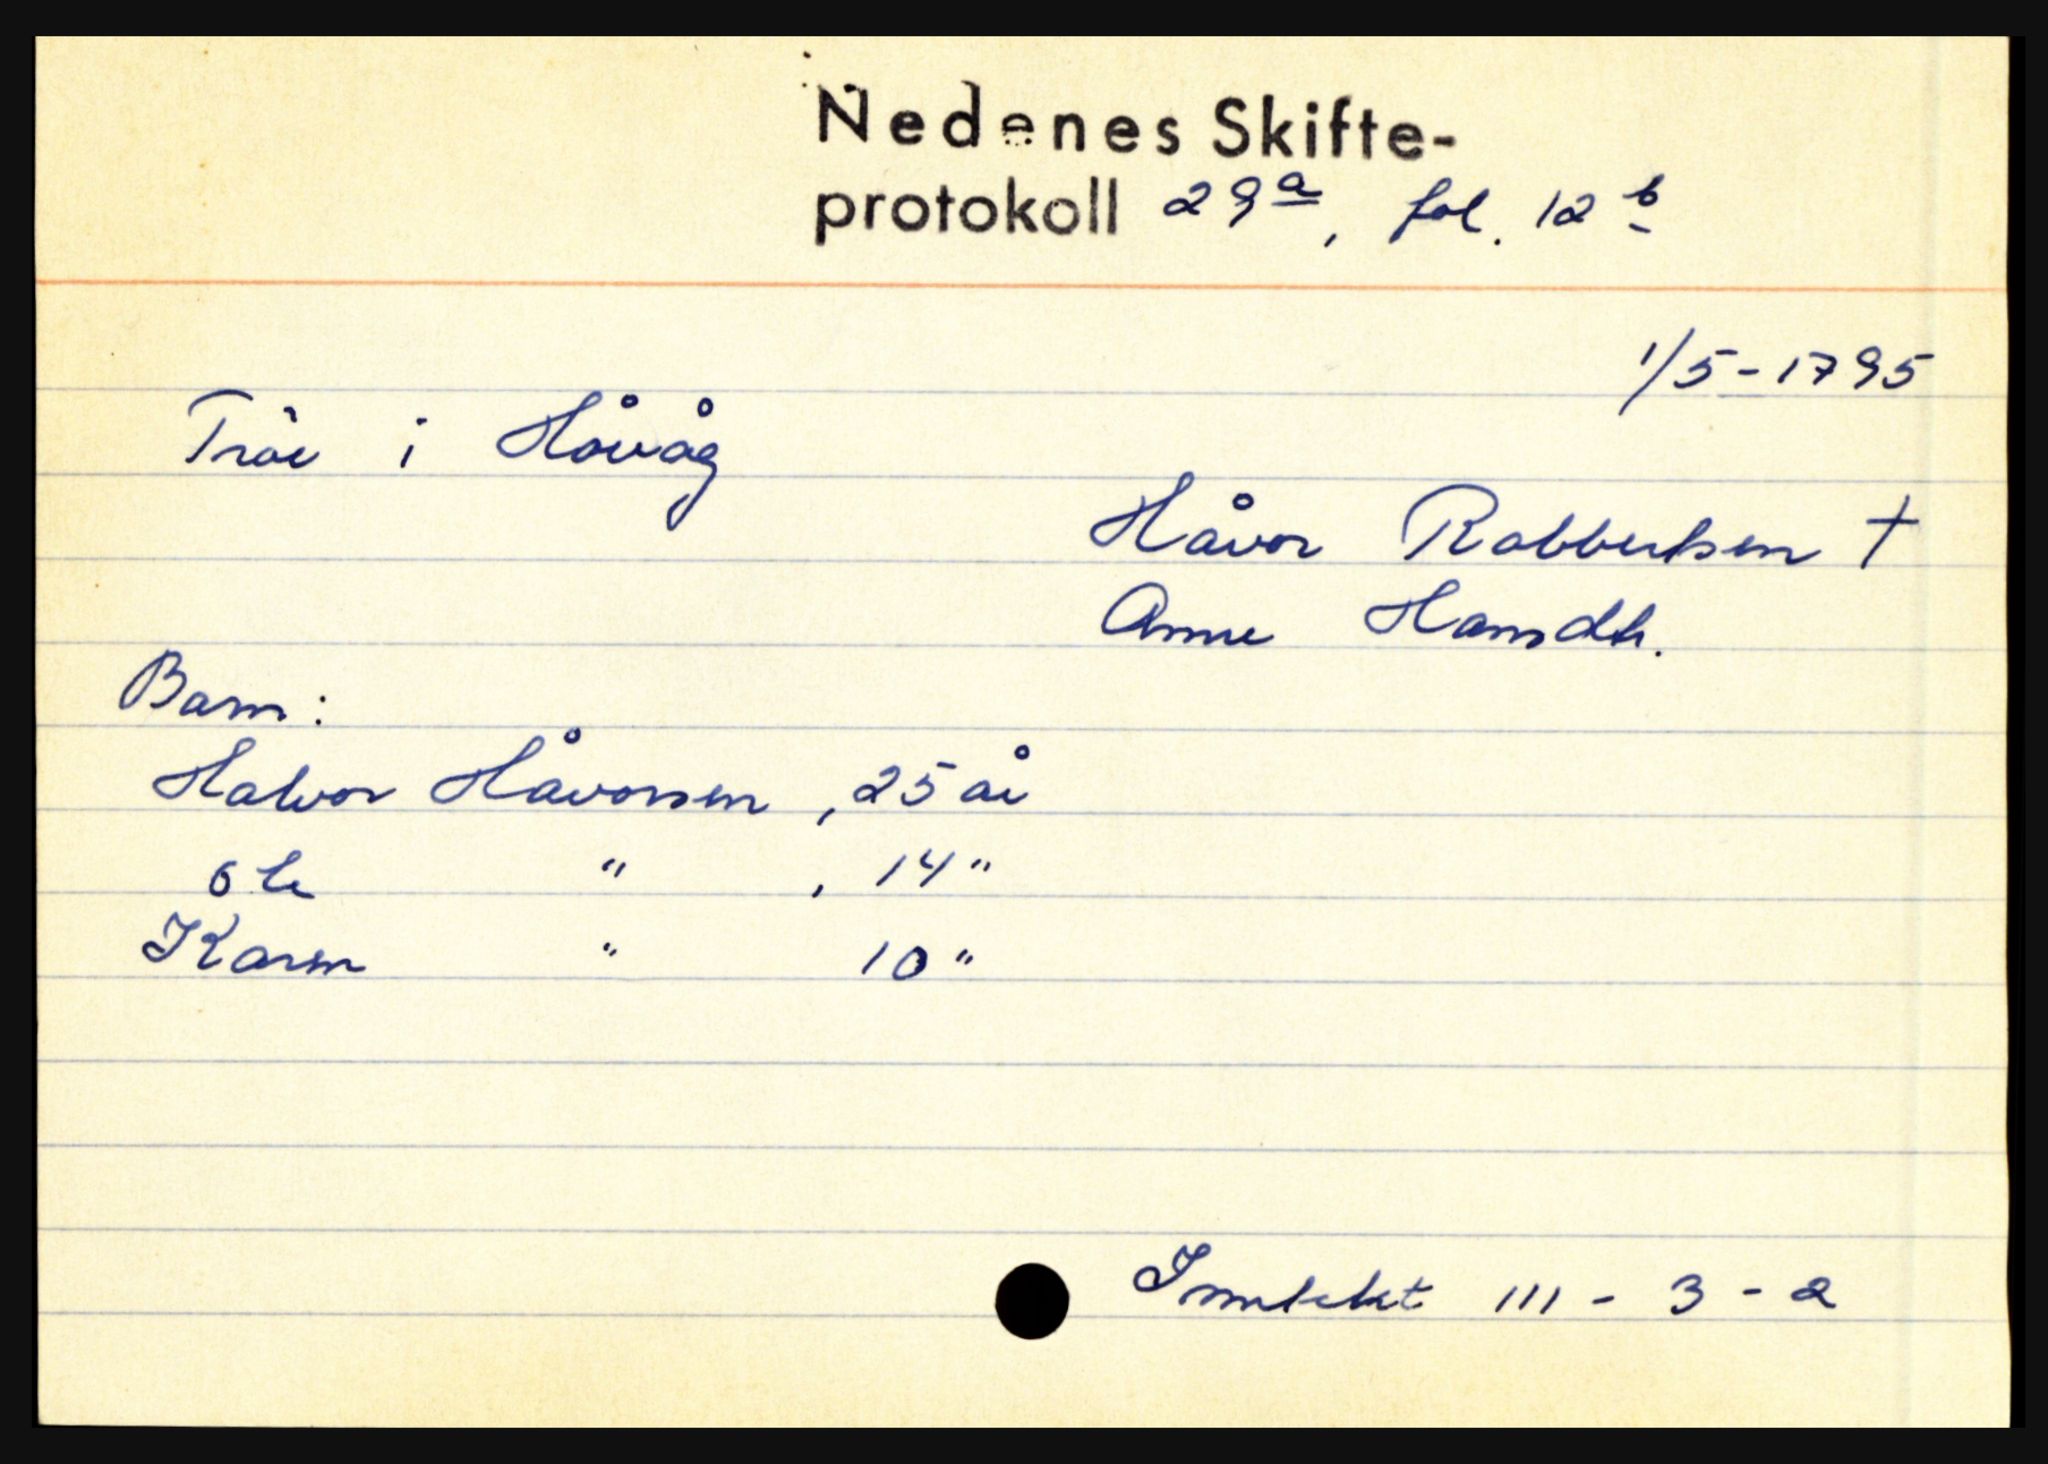 Nedenes Skifte-
protokoll 29a, fol. 12b
1/5-1795
Tråe i Håvåg
Håvor Robbertsen †
Anne Hansdtr.
Barn:
Halvor Håvorsen, 25 år
Ole " , 14 "
Karen " 10 "
Inntektet III - 3 - 2